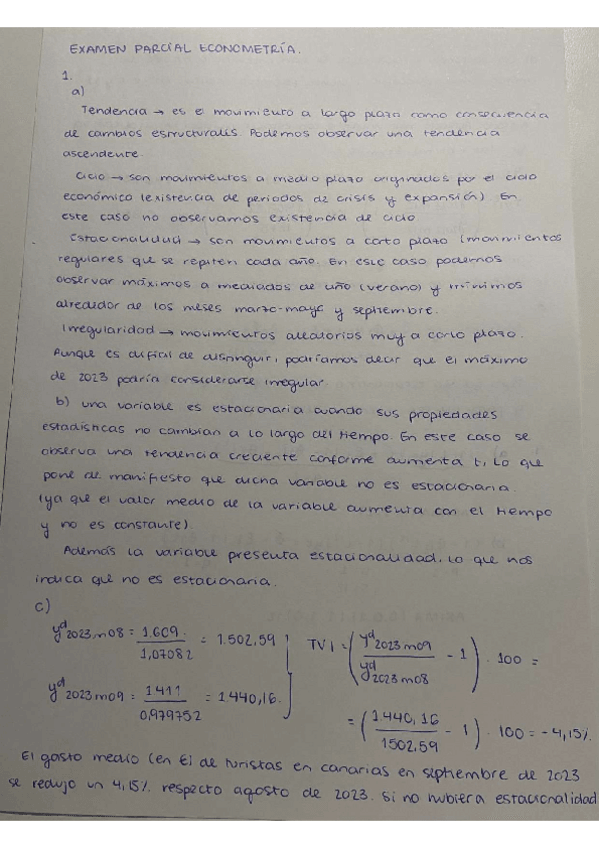 EXAMEN PARCIAL ECONOMETRÍA.
1.
a)
Tendencia → es el movimiento a largo plazo como consecuencia
de cambios estructurales. Podemos observar una tendencia
ascendente.
Ciclo → son movimientos a medio plazo originados por el ciclo
económico (existencia de periodos de crisis y expansión) En
este caso no observamos existencia de ciclo
Estacionalidad → son movimientos a corto plazo (movimientos
regulares que se repiten cada año. En este caso podemos
observar máximos a mediados de año (verano) y mínimos
alrededor de los meses marzo-mayo y septiembre.
Irregularidad → movimientos aleatorios muy a corto plazo.
Aunque es difícil de distinguir, podríamos decir que el máximo
de 2023 podría considerarse irregular.
b) una variable es estacionaria cuando sus propiedades
estadísticas no cambian a lo largo del tiempo. En este caso se
observa una tendencia creciente conforme aumenta t, lo que
pone de manifiesto que dicha variable no es estacionaria.
(ya que el valor medio de la variable aumenta con el tiempo
y no es constante).
Además la variable presenta estacionalidad, lo que nos
indica que no es estacionaria.
c)
yᵈ2023,m08 = 1.609 / 1,07082 = 1.502,59
yᵈ2023m09 = 1411 / 0,979752 = 1440,16.
TV1 = (yᵈ2023m09 / yᵈ2023m08 - 1) · 100 =
= (1.440,16 / 1502,59 - 1) · 100 = -4,15%
El gasto medio (en €) de turistas en canarias en septiembre de 2023
se redujo un 4,15% respecto agosto de 2023. si no hubiera estacionalidad